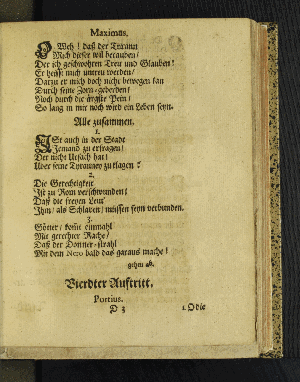 Maximus.
O Weh! daß der Tyrann
Mich dieser will berauben/
Der ich geschwohren Treu und Glauben!
Er heist mich untreu werden/
Darzu er mich doch nicht bewegen kan
Durch seine Zorn-geberden/
Noch durch die ärgste Pein!
So lang in mir noch wird ein Leben seyn.
Alle zusammen.
1.
Ist auch in der Stadt
Jemand zu erfragen/
Der nicht Ursach hat/
Uber seine Tyranney zu klagen?
2.
Die Gerechtigkeit
Ist zu Rom verschwunden!
Daß die freyen Leut'
Ihm/ als Schlaven/ müssen seyn verbunden.
3.
Götter/ komt einmahl
Mit gerechter Rache/
Daß der Donner-strahl
Mit dem Nero bald das garaus mache!
gehen ab.
Vierdter Aufftritt.
Portius.
D 3
1. O die